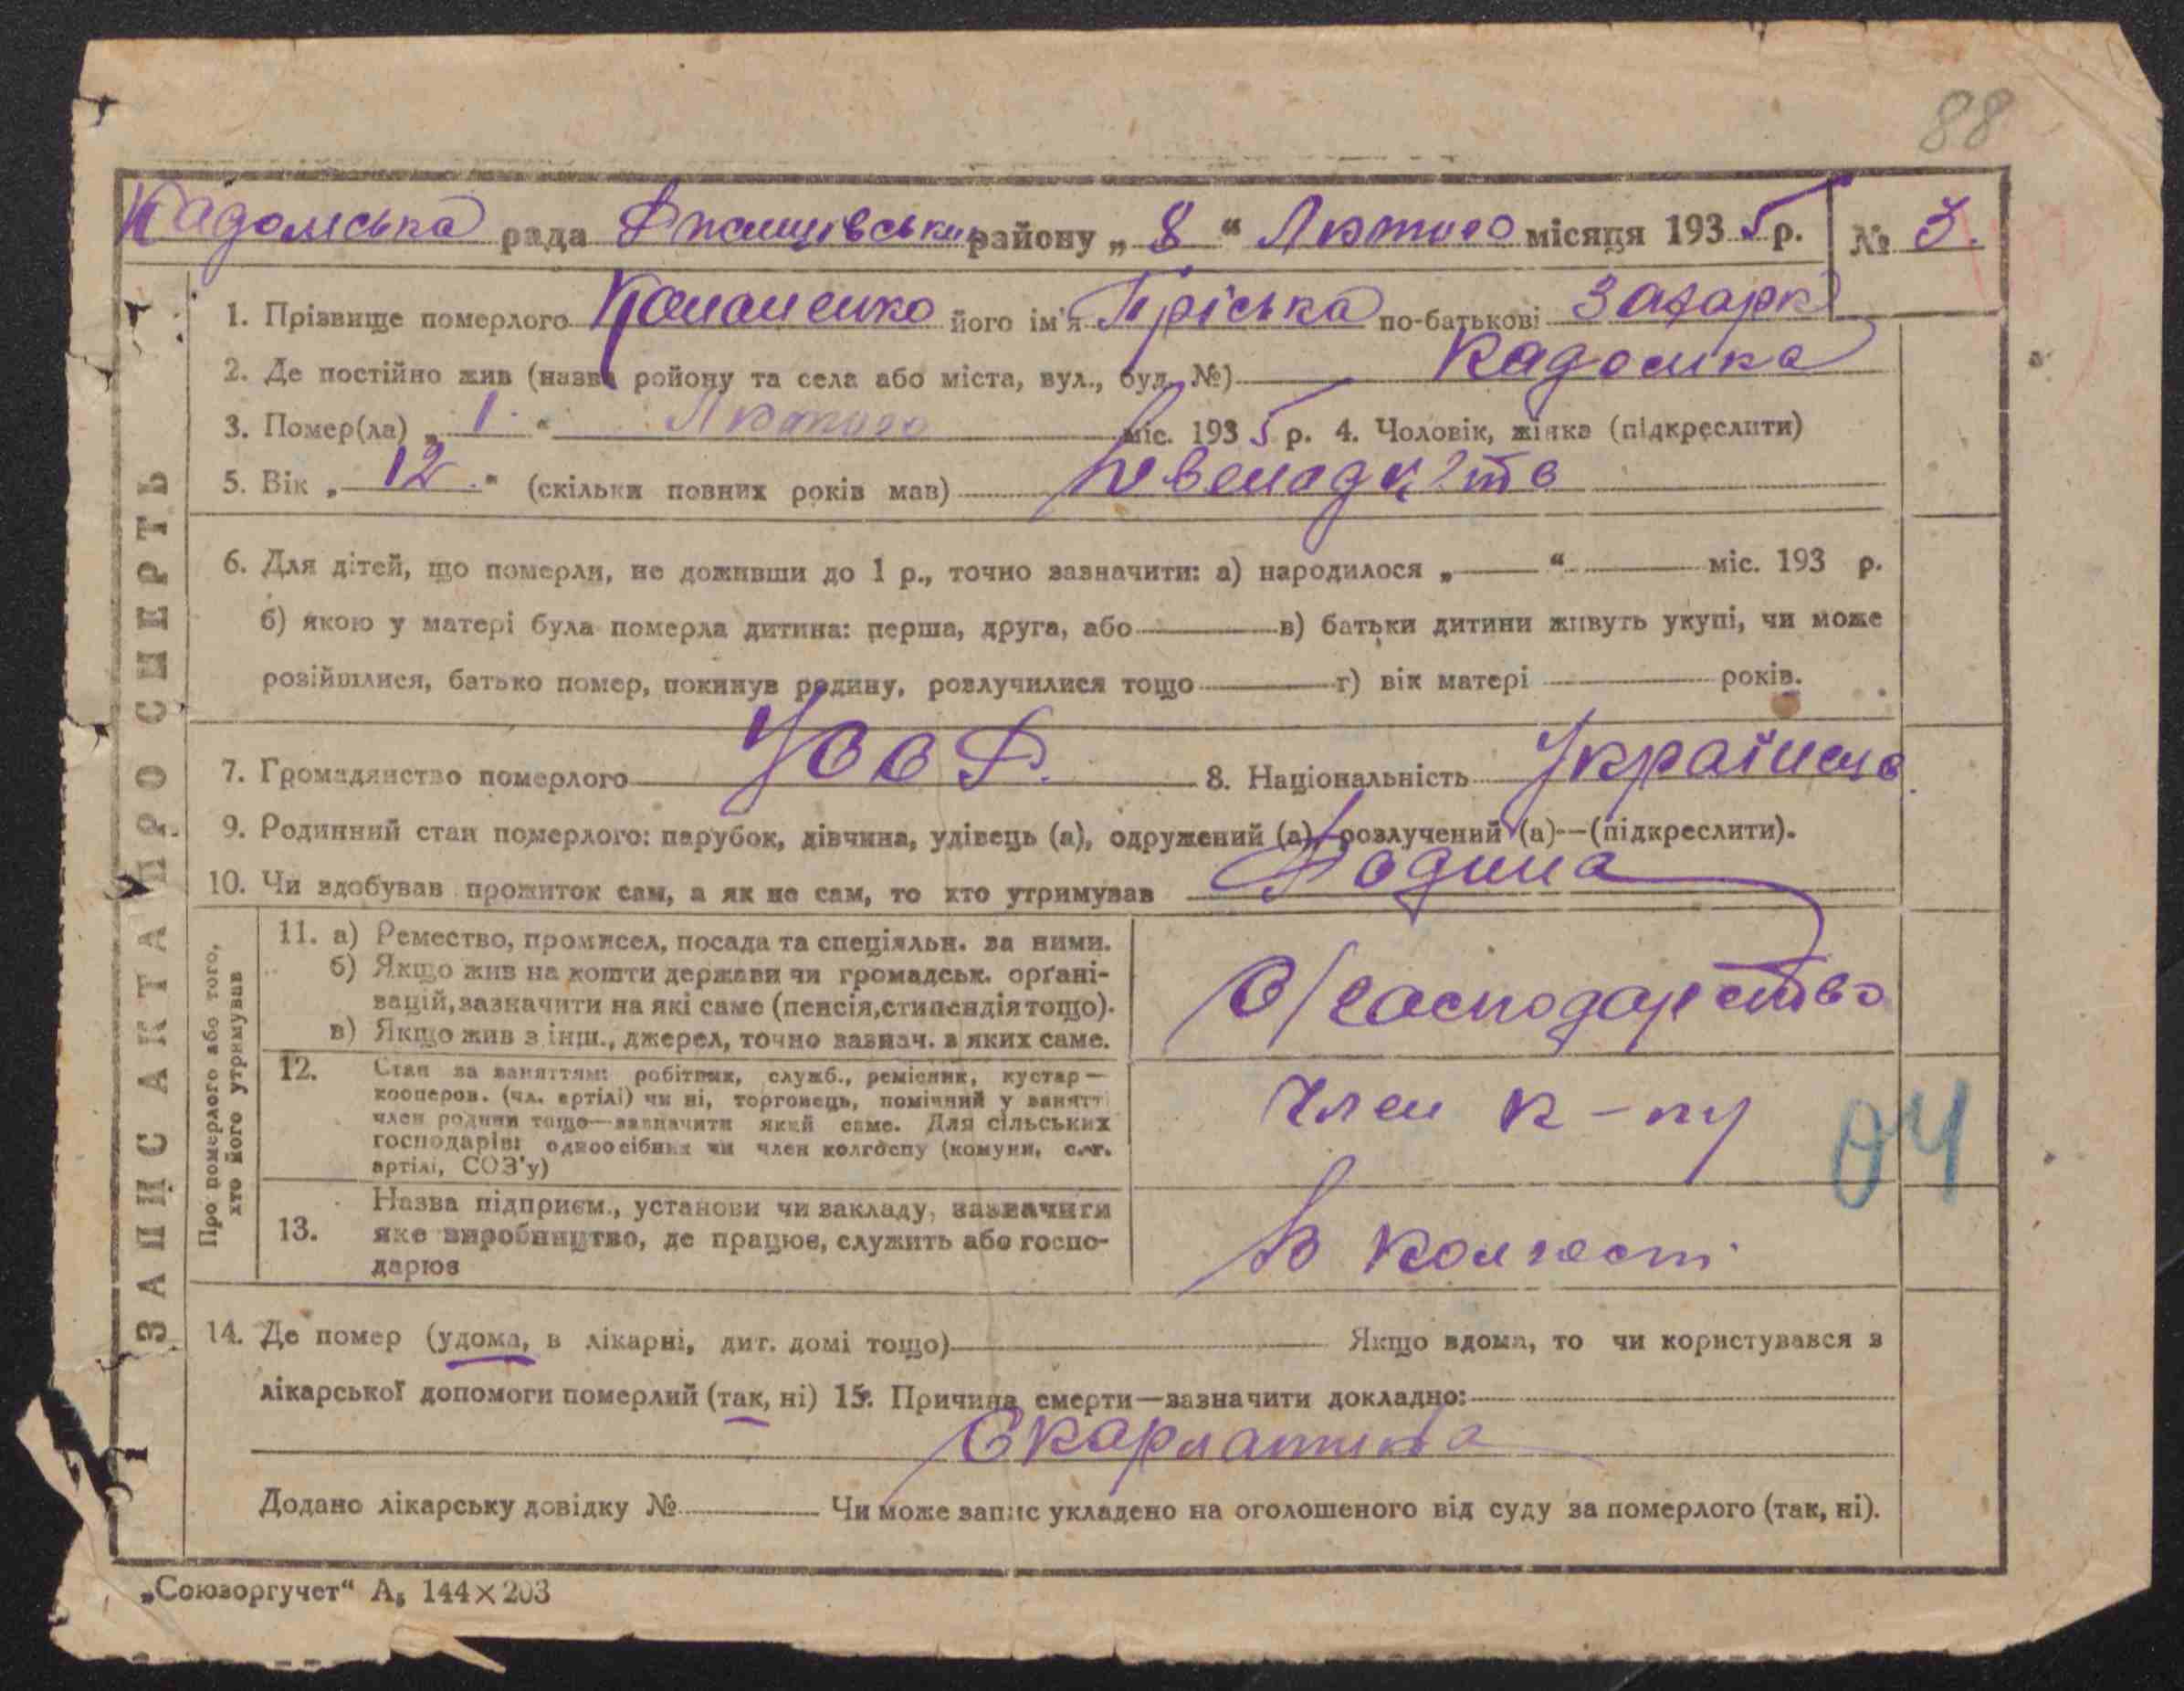 88
Кадомська рада Ржищівський району „ 8 “ Лютого місяця 193 5 р. № 3.
1. Прізвище померлого Кононенко його ім'я Пріська по-батькові Захарк
2. Де постійно жив (назва ройону та села або міста, вул., буд. №) Кадомка
3. Помер(ла) „ 1 “ Лютого міс. 193 5 р. 4. Чоловік, жінка (підкреслити)
5. Вік „ 12 “ (скільки повних років мав)
6. Для дітей, що померли, не доживши до 1 р., точно зазначити: а) народилося „ — “ — міс. 193 р.
б) якою у матері була померла дитина: перша, друга, або — в) батьки дитини живуть укупі, чи може
розійшлися, батько помер, покинув родину, розлучилися тощо — г) вік матері — років.
7. Громадянство померлого 8. Національність Українець
9. Родинний стан померлого: парубок, дівчина, удівець (а), одружений (а), розлучений (а)—(підкреслити).
10. Чи здобував прожиток сам, а як не сам, то хто утримував Родина
Про померлого або того, хто його утримував
11. а) Ремество, промисел, посада та спеціяльн. за ними.
б) Якщо жив на кошти держави чи громадськ. орґані-
зацій, зазначити на які саме (пенсія, стипендія тощо).
в) Якщо жив з інш., джерел, точно зазнач. з яких саме.
С/господарство
12. Стан за заняттям: робітник, служб., ремісник, кустар—
кооперов. (чл. артілі) чи ні, торговець, помічний у занятті
член родини тощо—зазначити який саме. Для сільських
господарів: одноосібник чи член колгоспу (комуни, с.-г.
артілі, СОЗ'у)
Член к-пу
04
13. Назва підприєм., установи чи закладу, зазначити
яке виробництво, де працює, служить або госпо-
дарює
В колгоспі
14. Де помер (удома, в лікарні, дит. домі тощо) — Якщо вдома, то чи користувався з
лікарської допомоги померлий (так, ні) 15. Причина смерти—зазначити докладно:
Скарлатина
Додано лікарську довідку № — Чи може запис укладено на оголошеного від суду за померлого (так, ні).
ЗАПИС АКТА ПРО СМЕРТЬ
„Союзоргучет“ А5 144×203